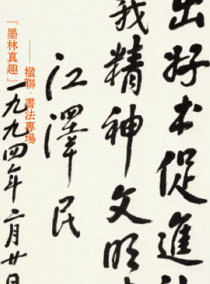 出好书促進社
我精神文明
江澤民
一九九四年二月廿日
『墨林真趣』
——楹聯·書法專場